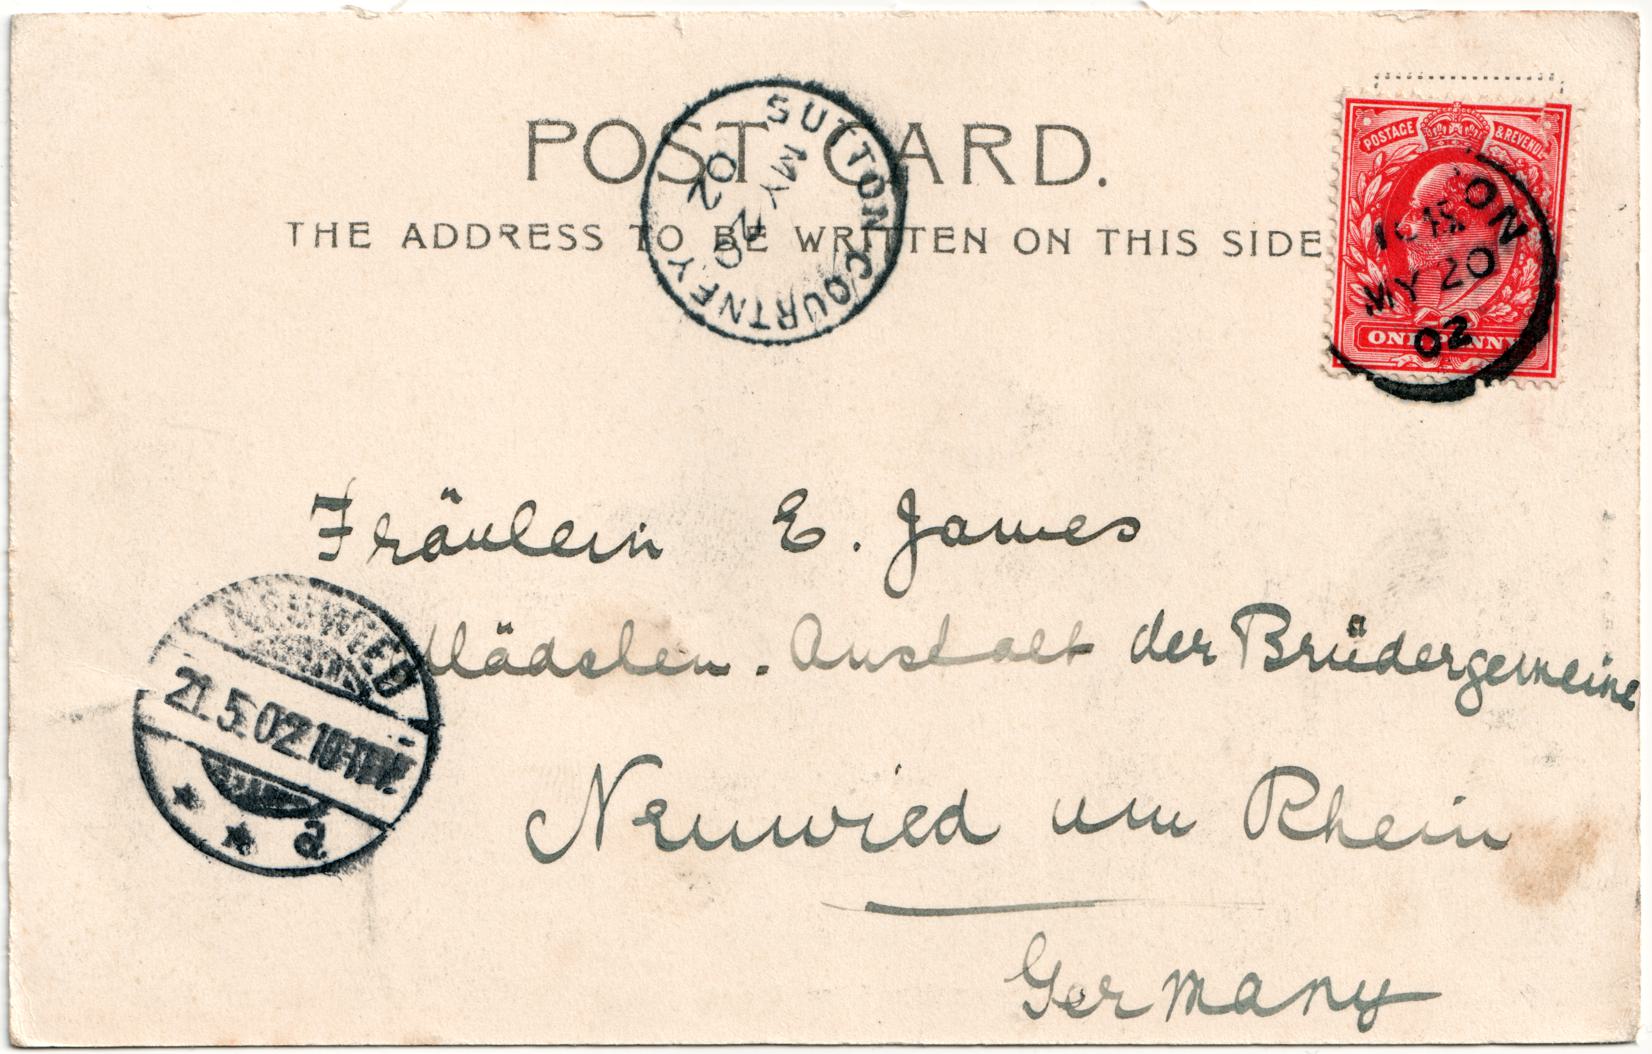 POST CARD.
THE ADDRESS TO BE WRITTEN ON THIS SIDE
SUTTON COURTNEY
MY 20
02
POSTAGE & REVENUE
ONE PENNY
ON
MY 20
02
Fräulein E. James
Mädchen-Anstalt der Brüdergemeine
Neuwied am Rhein
Germany
NEUWIED
21.5.02
a.